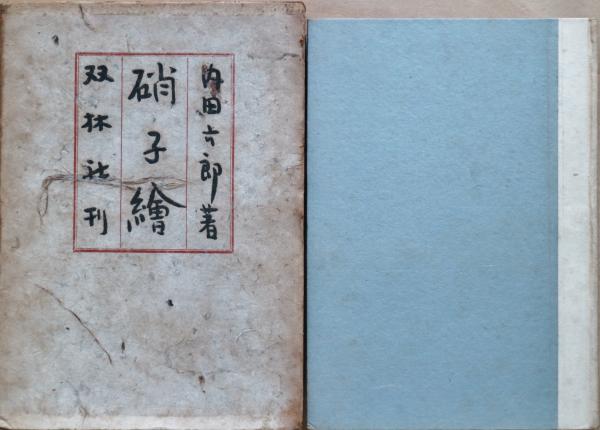 内田六郎著
硝子繪
双林社刊